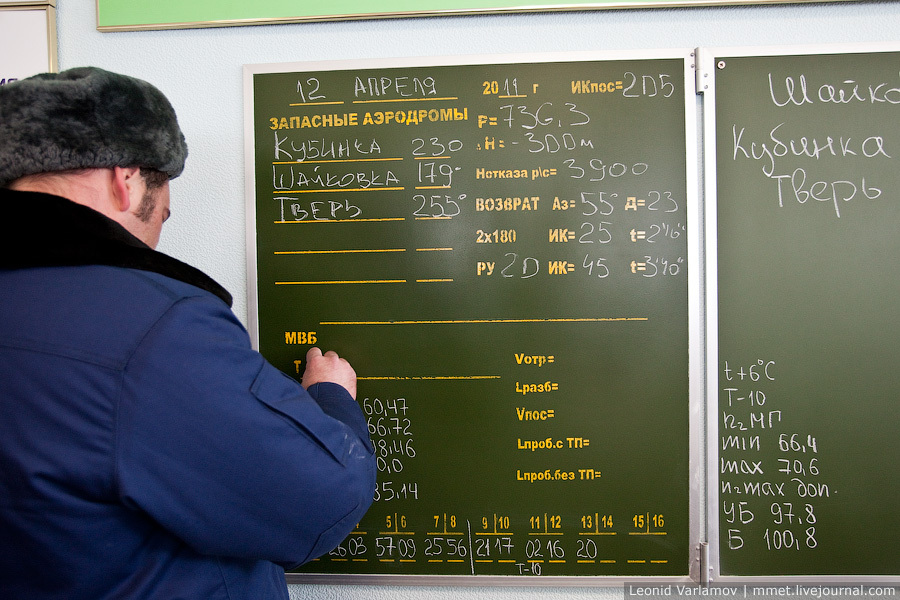 12 АПРЕЛЯ 2011 г ИКпос=205
ЗАПАСНЫЕ АЭРОДРОМЫ P=736,3
КУБИНКА 230 H=-300м
ШАЙКОВКА 179° Нотказа р/с= 3900
ТВЕРЬ 255° ВОЗВРАТ Аз=55° Д=23
2х180 ИК=25 t=2'16"
РУ 2D ИК=45 t=3'40"
МВБ
Т
Vотр=
60,47
Lразб=
66,72
Vпос=
8,46
Lпроб.с ТП=
0,0
Lпроб.без ТП=
35,14
5|6 7|8 9|10 11|12 13|14 15|16
26 03 57 09 25 56 21 17 02 16 20
Т-10
Шайко
Кубинка
Тверь
t+6°C
Т-10
n2МП
min 66,4
max 70,6
n2max доп.
УБ 97,8
Б 100,8
Leonid Varlamov | mmet.livejournal.com